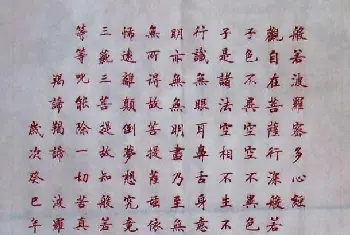 般若波羅蜜多心經
觀自在菩薩行深般若
子色不異空空不異色
子是諸法空相不生不
行識無眼耳鼻舌身意
明亦無無明盡乃至無
無所得故菩提薩埵依
怖遠離顛倒夢想究竟
三藐三菩提故知般若
等等咒能除一切苦真
羯諦羯諦波羅
歲次癸巳年